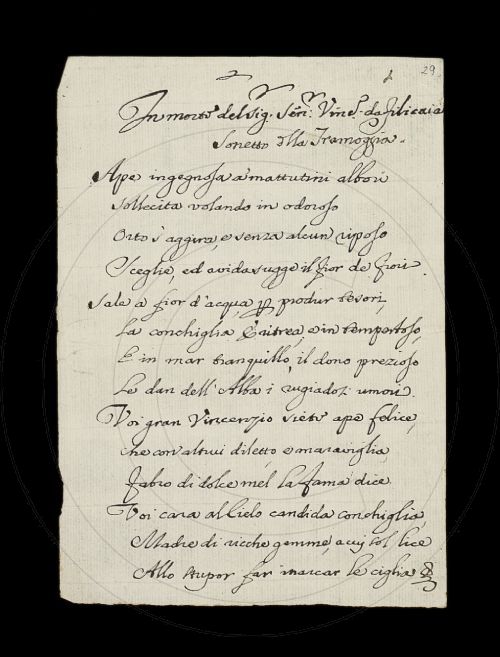 29
In morte del Sig. Sen: Vinc. da Filicaia
Sonetto alla Tramoggia.
Ape ingegnosa a' mattutini albori
Sollecita volando in odoroso
Orto s'aggira, e senza alcun riposo
Sceglie, ed avida sugge il fior de fiori.
Sale a fior d'acqua, p produr tesori,
La conchiglia Eritrea, e in tempestoso,
E in mar tranquillo, il dono prezioso
Le dan dell'Alba i rugiadosi umori.
Voi gran Vincenzio siete ape felice,
che con altrui diletto, e maraviglia
Fabro di dolce mel la fama dice
Voi cara al Cielo candida conchiglia,
Madre di ricche gemme, a cui sol lice
Allo stupor far inarcar le ciglia